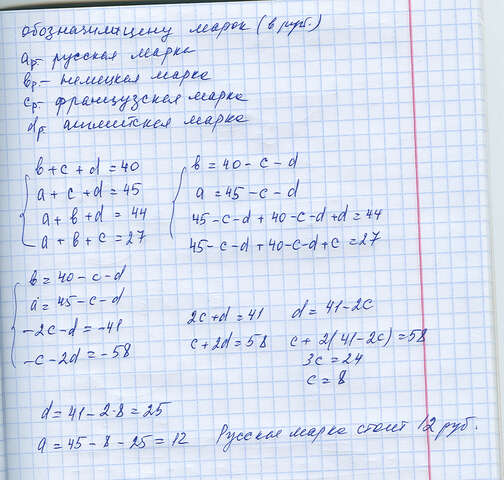 обозначим цену марок (в руб.)
a р - русская марка
в р - немецкая марка
c р - французская марка
d р - английская марка
в + c + d = 40
a + c + d = 45
a + в + d = 44
a + в + c = 27
в = 40 - c - d
a = 45 - c - d
45 - c - d + 40 - c - d + d = 44
45 - c - d + 40 - c - d + c = 27
в = 40 - c - d
a = 45 - c - d
-2c - d = -41
-c - 2d = -58
2c + d = 41
c + 2d = 58
d = 41 - 2c
c + 2(41 - 2c) = 58
3c = 24
c = 8
d = 41 - 2·8 = 25
a = 45 - 8 - 25 = 12
Русская марка стоит 12 руб.